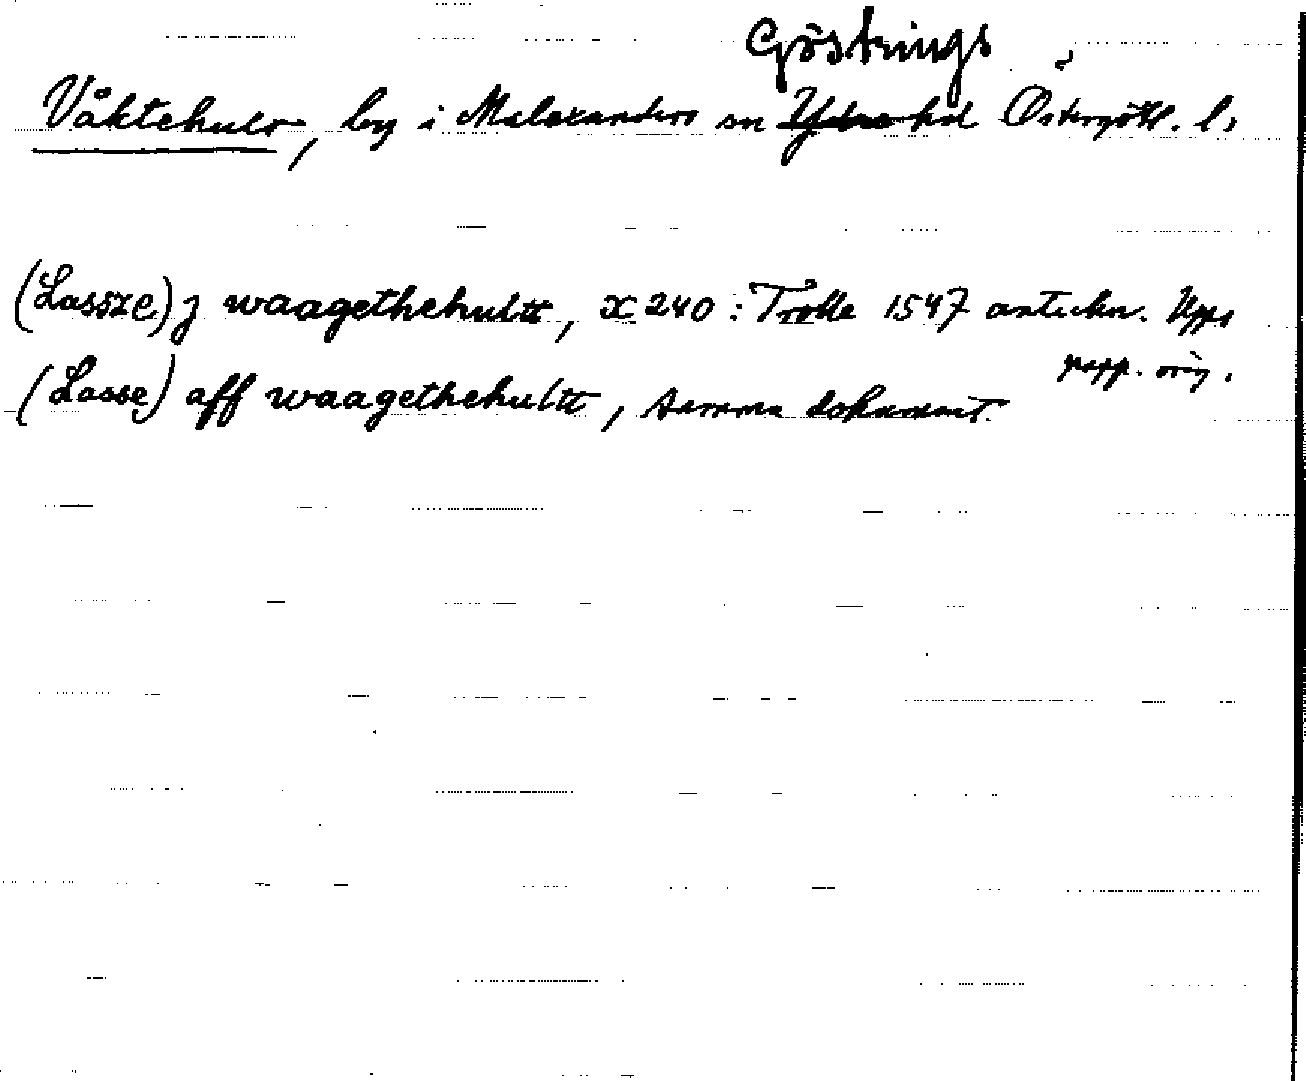 Göstrings
Våktehult, by i Malexanders sn Ydre hd Östergötl. l.
(Lassze) j waagethehultt, X 240 : Trolle 1547 anteckn. Upps
papp. orig.
(Lasse) aff waagethehultt, samma dokument.